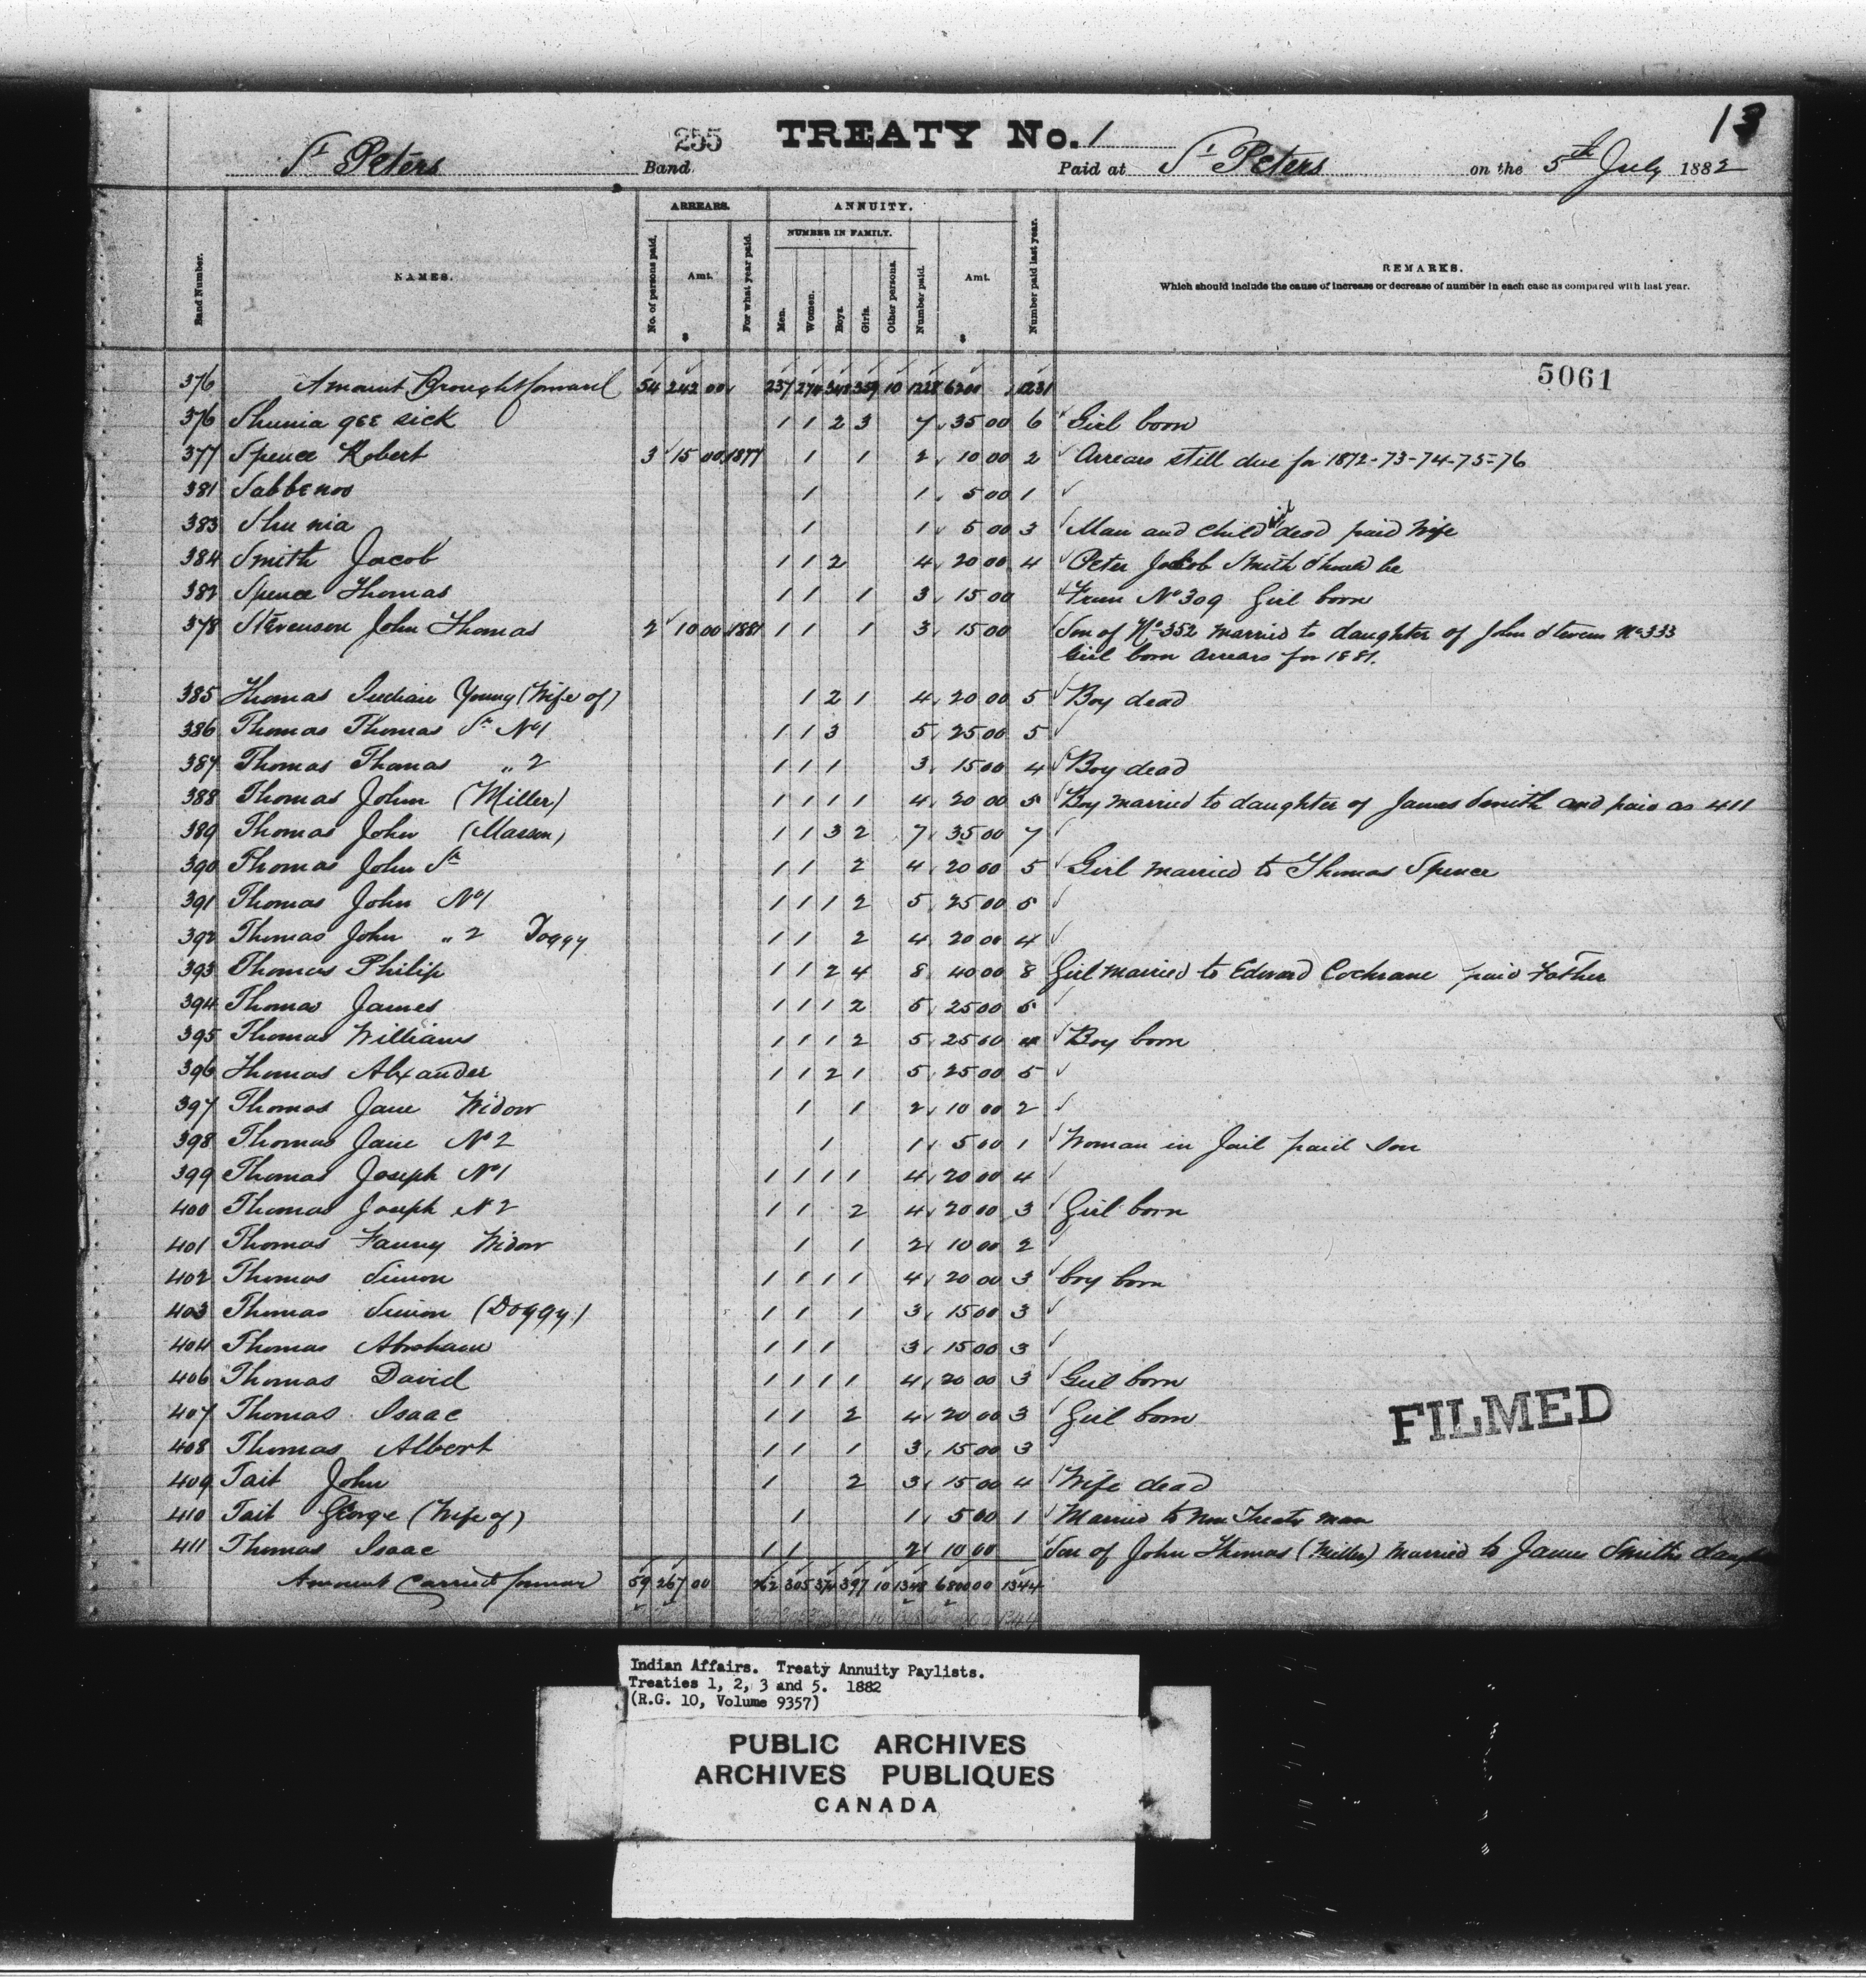 13
St Peters 255 Band TREATY No. 1 Paid at St Peters on the 5th July 1882
Band Number. NAMES. ARREARS. No. of persons paid. Amt. $ For what year paid. ANNUITY. NUMBER IN FAMILY. Men. Women. Boys. Girls. Other persons. Number paid. Amt. $ Number paid last year. REMARKS.
Which should include the cause of increase or decrease of number in each case as compared with last year.
5061
376 Amount Brought forward 54 242 00 237 274 348 359 10 1228 6200 1231
376 Shunia gee sick 1 1 2 3 7 35 00 6 Girl born
377 Spence Robert 3 15 00 1877 1 1 2 10 00 2 Arrears still due for 1872-73-74-75-76
381 Sabbenos 1 1 5 00 1
383 Shu nia 1 1 5 00 3 Man and child dead paid Wife
384 Smith Jacob 1 1 2 4 20 00 4 Peter Jacob Smith Should be
382 Spence Thomas 1 1 1 3 15 00 From No 309 Girl born
378 Stevenson John Thomas 2 10 00 1881 1 1 1 3 15 00 Son of No 352 married to daughter of John Stevens No 333
Girl born Arrears for 1881.
385 Thomas Indian Young (Wife of) 1 2 1 4 20 00 5 Boy dead
386 Thomas Thomas Sr No 1 1 1 3 5 25 00 5
387 Thomas Thomas " 2 1 1 1 3 15 00 4 Boy dead
388 Thomas John (Miller) 1 1 1 1 4 20 00 5 Boy married to daughter of James Smith and paid as 411
389 Thomas John (Mason) 1 1 3 2 7 35 00 7
390 Thomas John Sr 1 1 2 4 20 00 5 Girl married to Thomas Spence
391 Thomas John No 1 1 1 1 2 5 25 00 5
392 Thomas John " 2 Doggy 1 1 2 4 20 00 4
393 Thomas Philip 1 1 2 4 8 40 00 8 Girl married to Edward Cochrane paid Father
394 Thomas James 1 1 1 2 5 25 00 5
395 Thomas Williams 1 1 1 2 5 25 00 4 Boy born
396 Thomas Alxander 1 1 2 1 5 25 00 5
397 Thomas Jane Widow 1 1 2 10 00 2
398 Thomas Jane No 2 1 1 5 00 1 Woman in Jail paid Son
399 Thomas Joseph No 1 1 1 1 1 4 20 00 4
400 Thomas Joseph N 2 1 1 2 4 20 00 3 Girl born
401 Thomas Fanny Widow 1 1 2 10 00 2
402 Thomas Simon 1 1 1 1 4 20 00 3 boy born
403 Thomas Simon (Doggy) 1 1 1 3 15 00 3
404 Thomas Abraham 1 1 1 3 15 00 3
406 Thomas David 1 1 1 1 4 20 00 3 Girl born
407 Thomas Isaac 1 1 2 4 20 00 3 Girl born
FILMED
408 Thomas Albert 1 1 1 3 15 00 3
409 Tait John 1 2 3 15 00 4 Wife dead
410 Tait George (Wife of) 1 1 5 00 1 Married to Non Treaty man
411 Thomas Isaac 1 1 2 10 00 Son of John Thomas (Miller) married to James Smiths
Amount Carried forward 59 267 00 262 305 374 397 10 1348 6800 00 1344
Indian Affairs. Treaty Annuity Paylists.
Treaties 1, 2, 3 and 5. 1882
(R.G. 10, Volume 9357)
PUBLIC ARCHIVES
ARCHIVES PUBLIQUES
CANADA